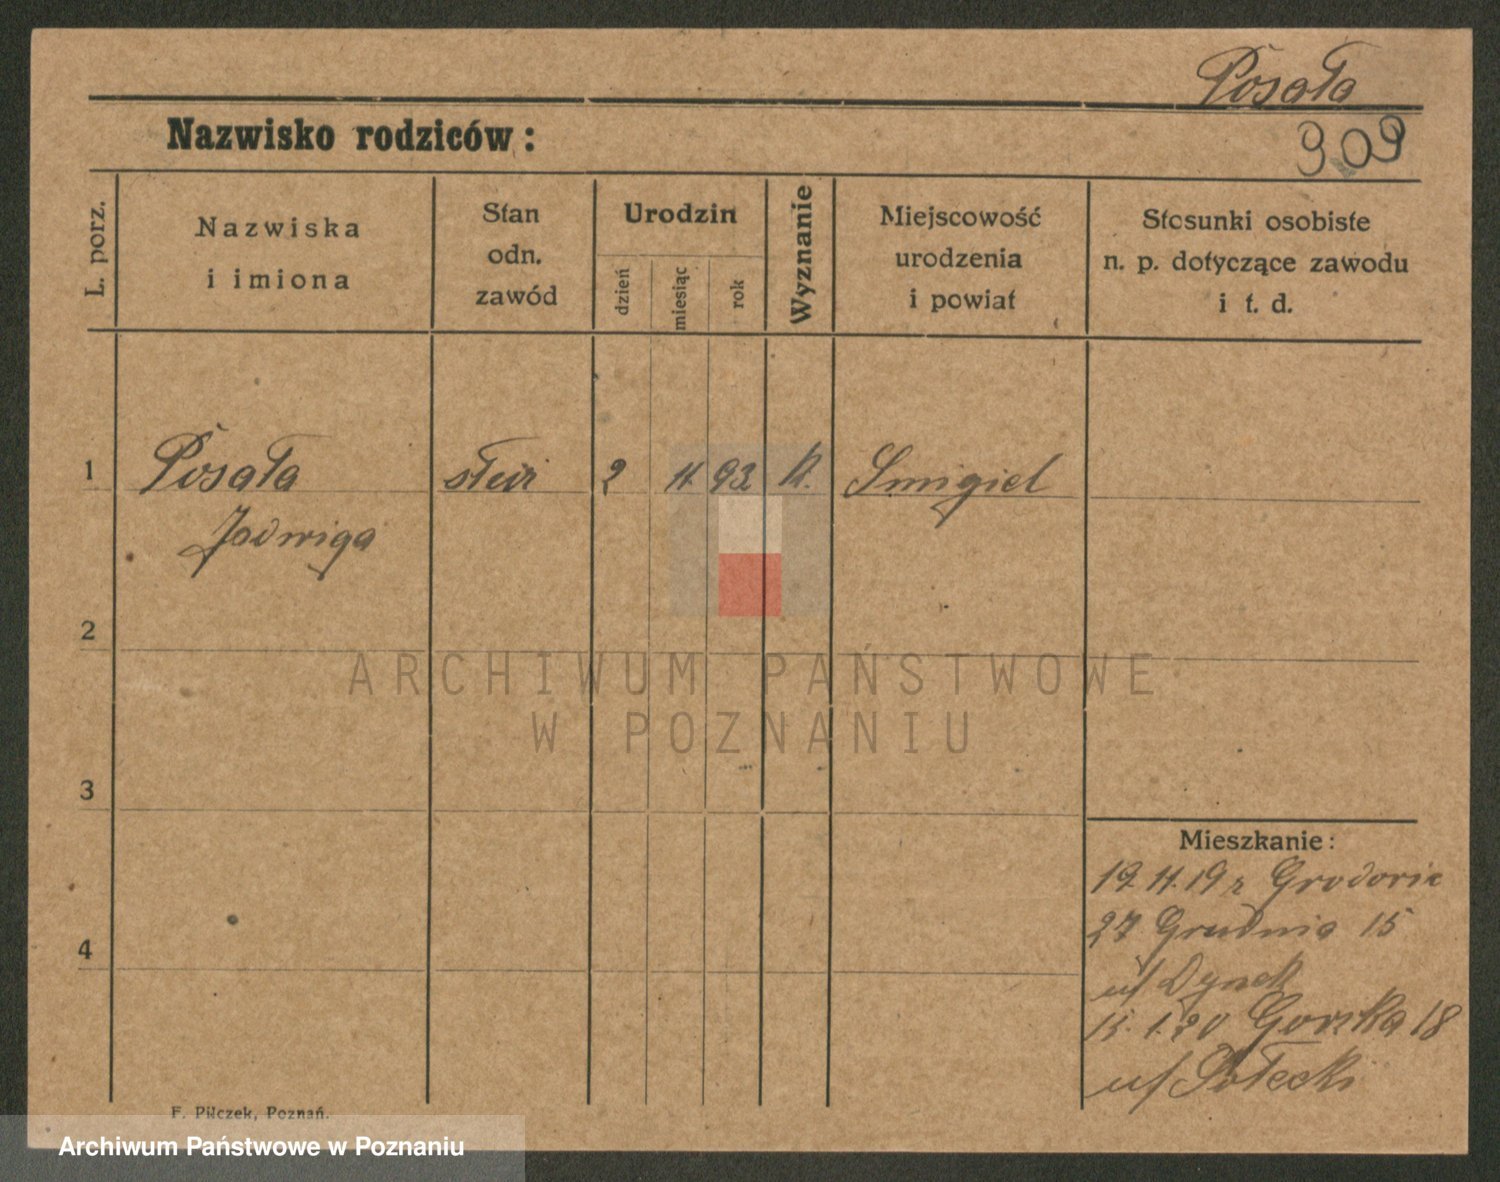 Posała
Nazwisko rodziców:
909
L. porz.
Nazwiska
i imiona
Stan
odn.
zawód
Urodzin
dzień
miesiąc
rok
Wyznanie
Miejscowość
urodzenia
i powiat
Stosunki osobiste
n. p. dotyczące zawodu
i t. d.
1
Posała
2 11 93 K. Smigiel
Jadwiga
2
ARCHIWUM PAŃSTWOWE
W POZNANIU
3
Mieszkanie:
19. 11. 19 z
27 Grudnia 15
u/ Dynek
4
15. 1. 20 Gorska 18
u/ Sołecki
F. Pilczek, Poznań.
Archiwum Państwowe w Poznaniu